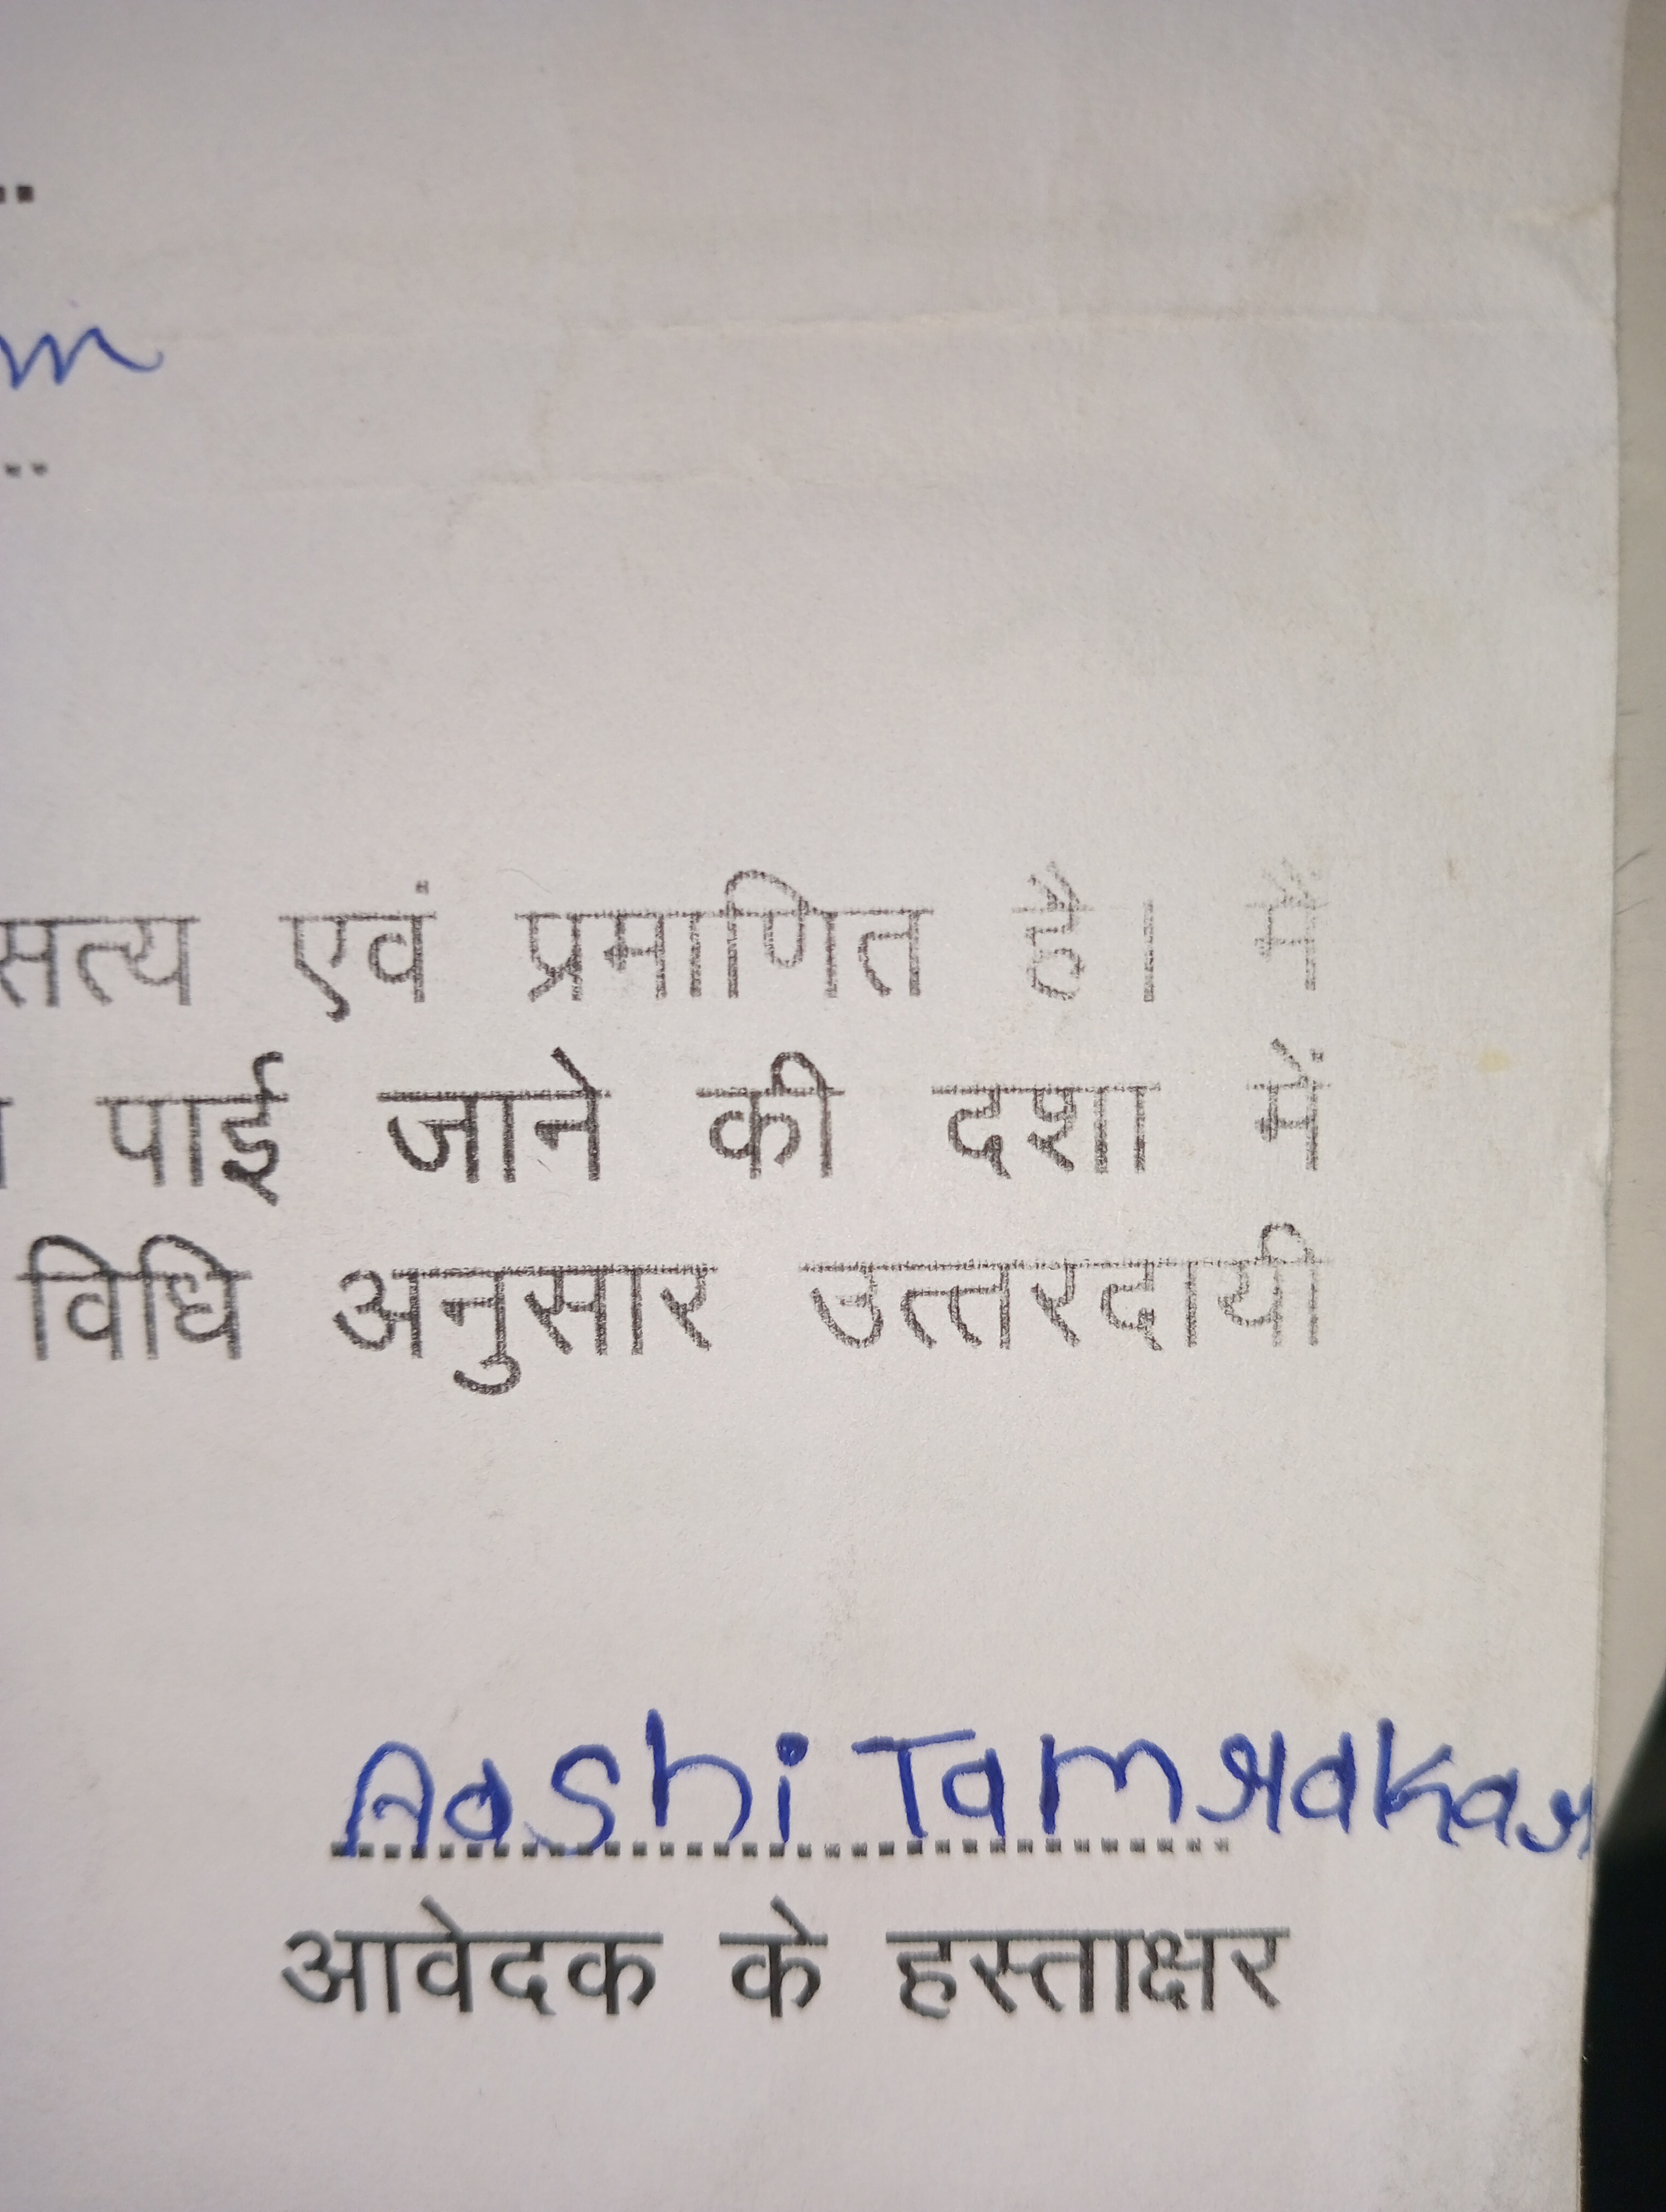 ..
..
सत्य एवं प्रमाणित है। मैं
पाई जाने की दशा में
विधि अनुसार उत्तरदायी
Aashi Tamrakar
....................................
आवेदक के हस्ताक्षर